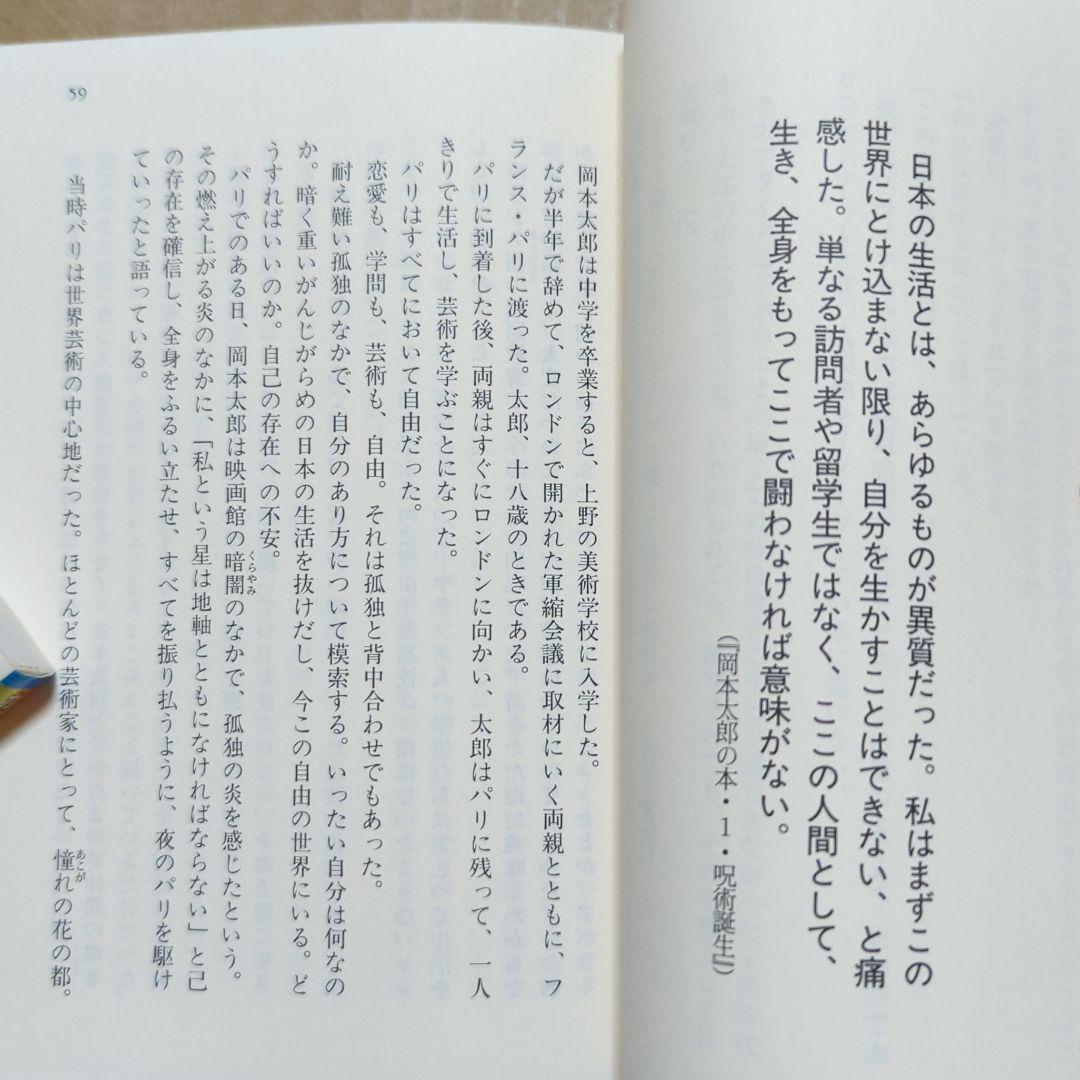 日本の生活とは、あらゆるものが異質だった。私はまずこの
世界にとけ込まない限り、自分を生かすことはできない、と痛
感した。単なる訪問者や留学生ではなく、ここの人間として、
生き、全身をもってここで闘わなければ意味がない。
（『岡本太郎の本・1・呪術誕生』）
岡本太郎は中学を卒業すると、上野の美術学校に入学した。
だが半年で辞めて、ロンドンで開かれた軍縮会議に取材にいく両親とともに、フ
ランス・パリに渡った。太郎、十八歳のときである。
パリに到着した後、両親はすぐにロンドンに向かい、太郎はパリに残って、一人
きりで生活し、芸術を学ぶことになった。
パリはすべてにおいて自由だった。
恋愛も、学問も、芸術も、自由。それは孤独と背中合わせでもあった。
耐え難い孤独のなかで、自分のあり方について模索する。いったい自分は何なの
か。暗く重いがんじがらめの日本の生活を抜けだし、今この自由の世界にいる。ど
うすればいいのか。自己の存在への不安。
パリでのある日、岡本太郎は映画館の暗闇のなかで、孤独の炎を感じたという。
くらやみ
その燃え上がる炎のなかに、「私という星は地軸とともになければならない」と己
の存在を確信し、全身をふるい立たせ、すべてを振り払うように、夜のパリを駆け
ていったと語っている。
当時パリは世界芸術の中心地だった。ほとんどの芸術家にとって、憧れの花の都。
あこが
59